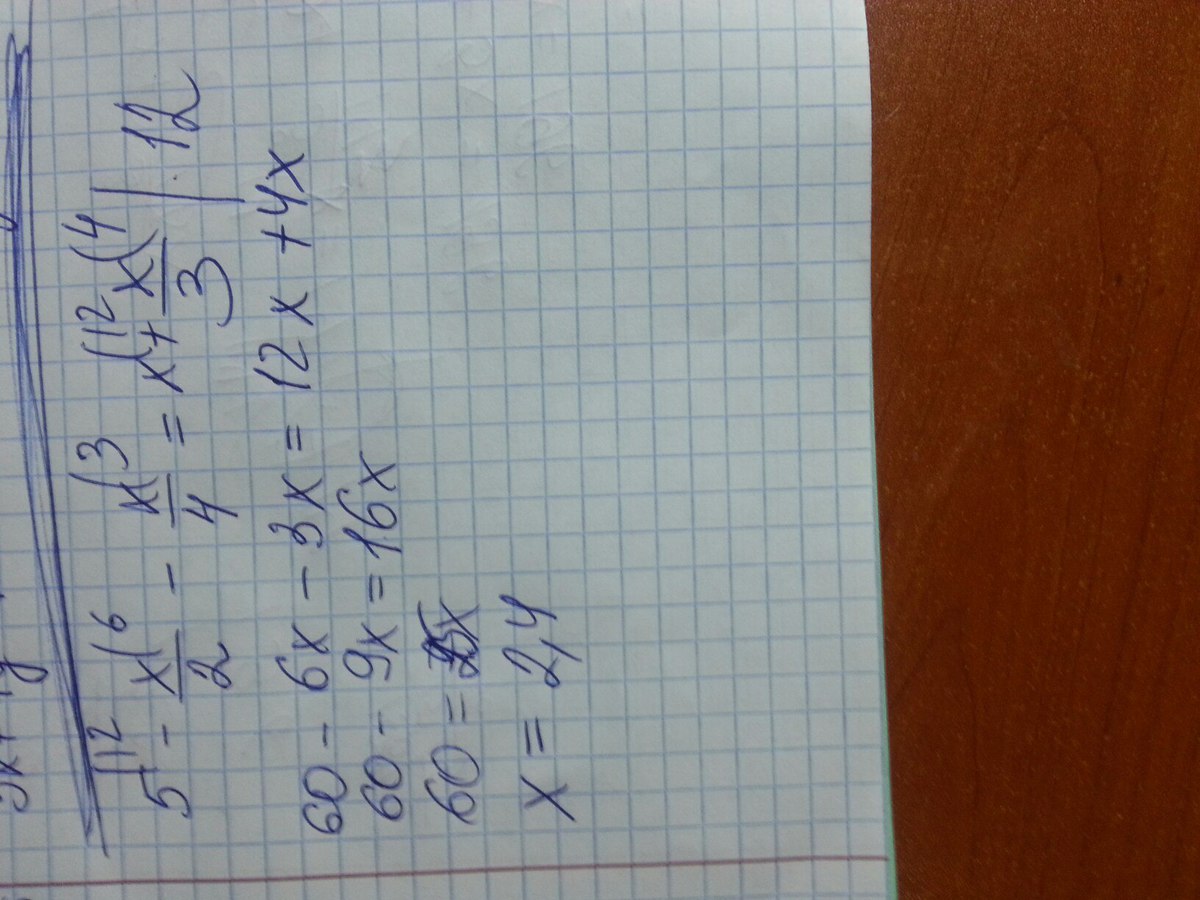 5(12 - x(6/2 - x(3/4 = x(12 + x(4/3 | · 12
60 - 6x - 3x = 12x + 4x
60 - 9x = 16x
60 = 25x
x = 2,4